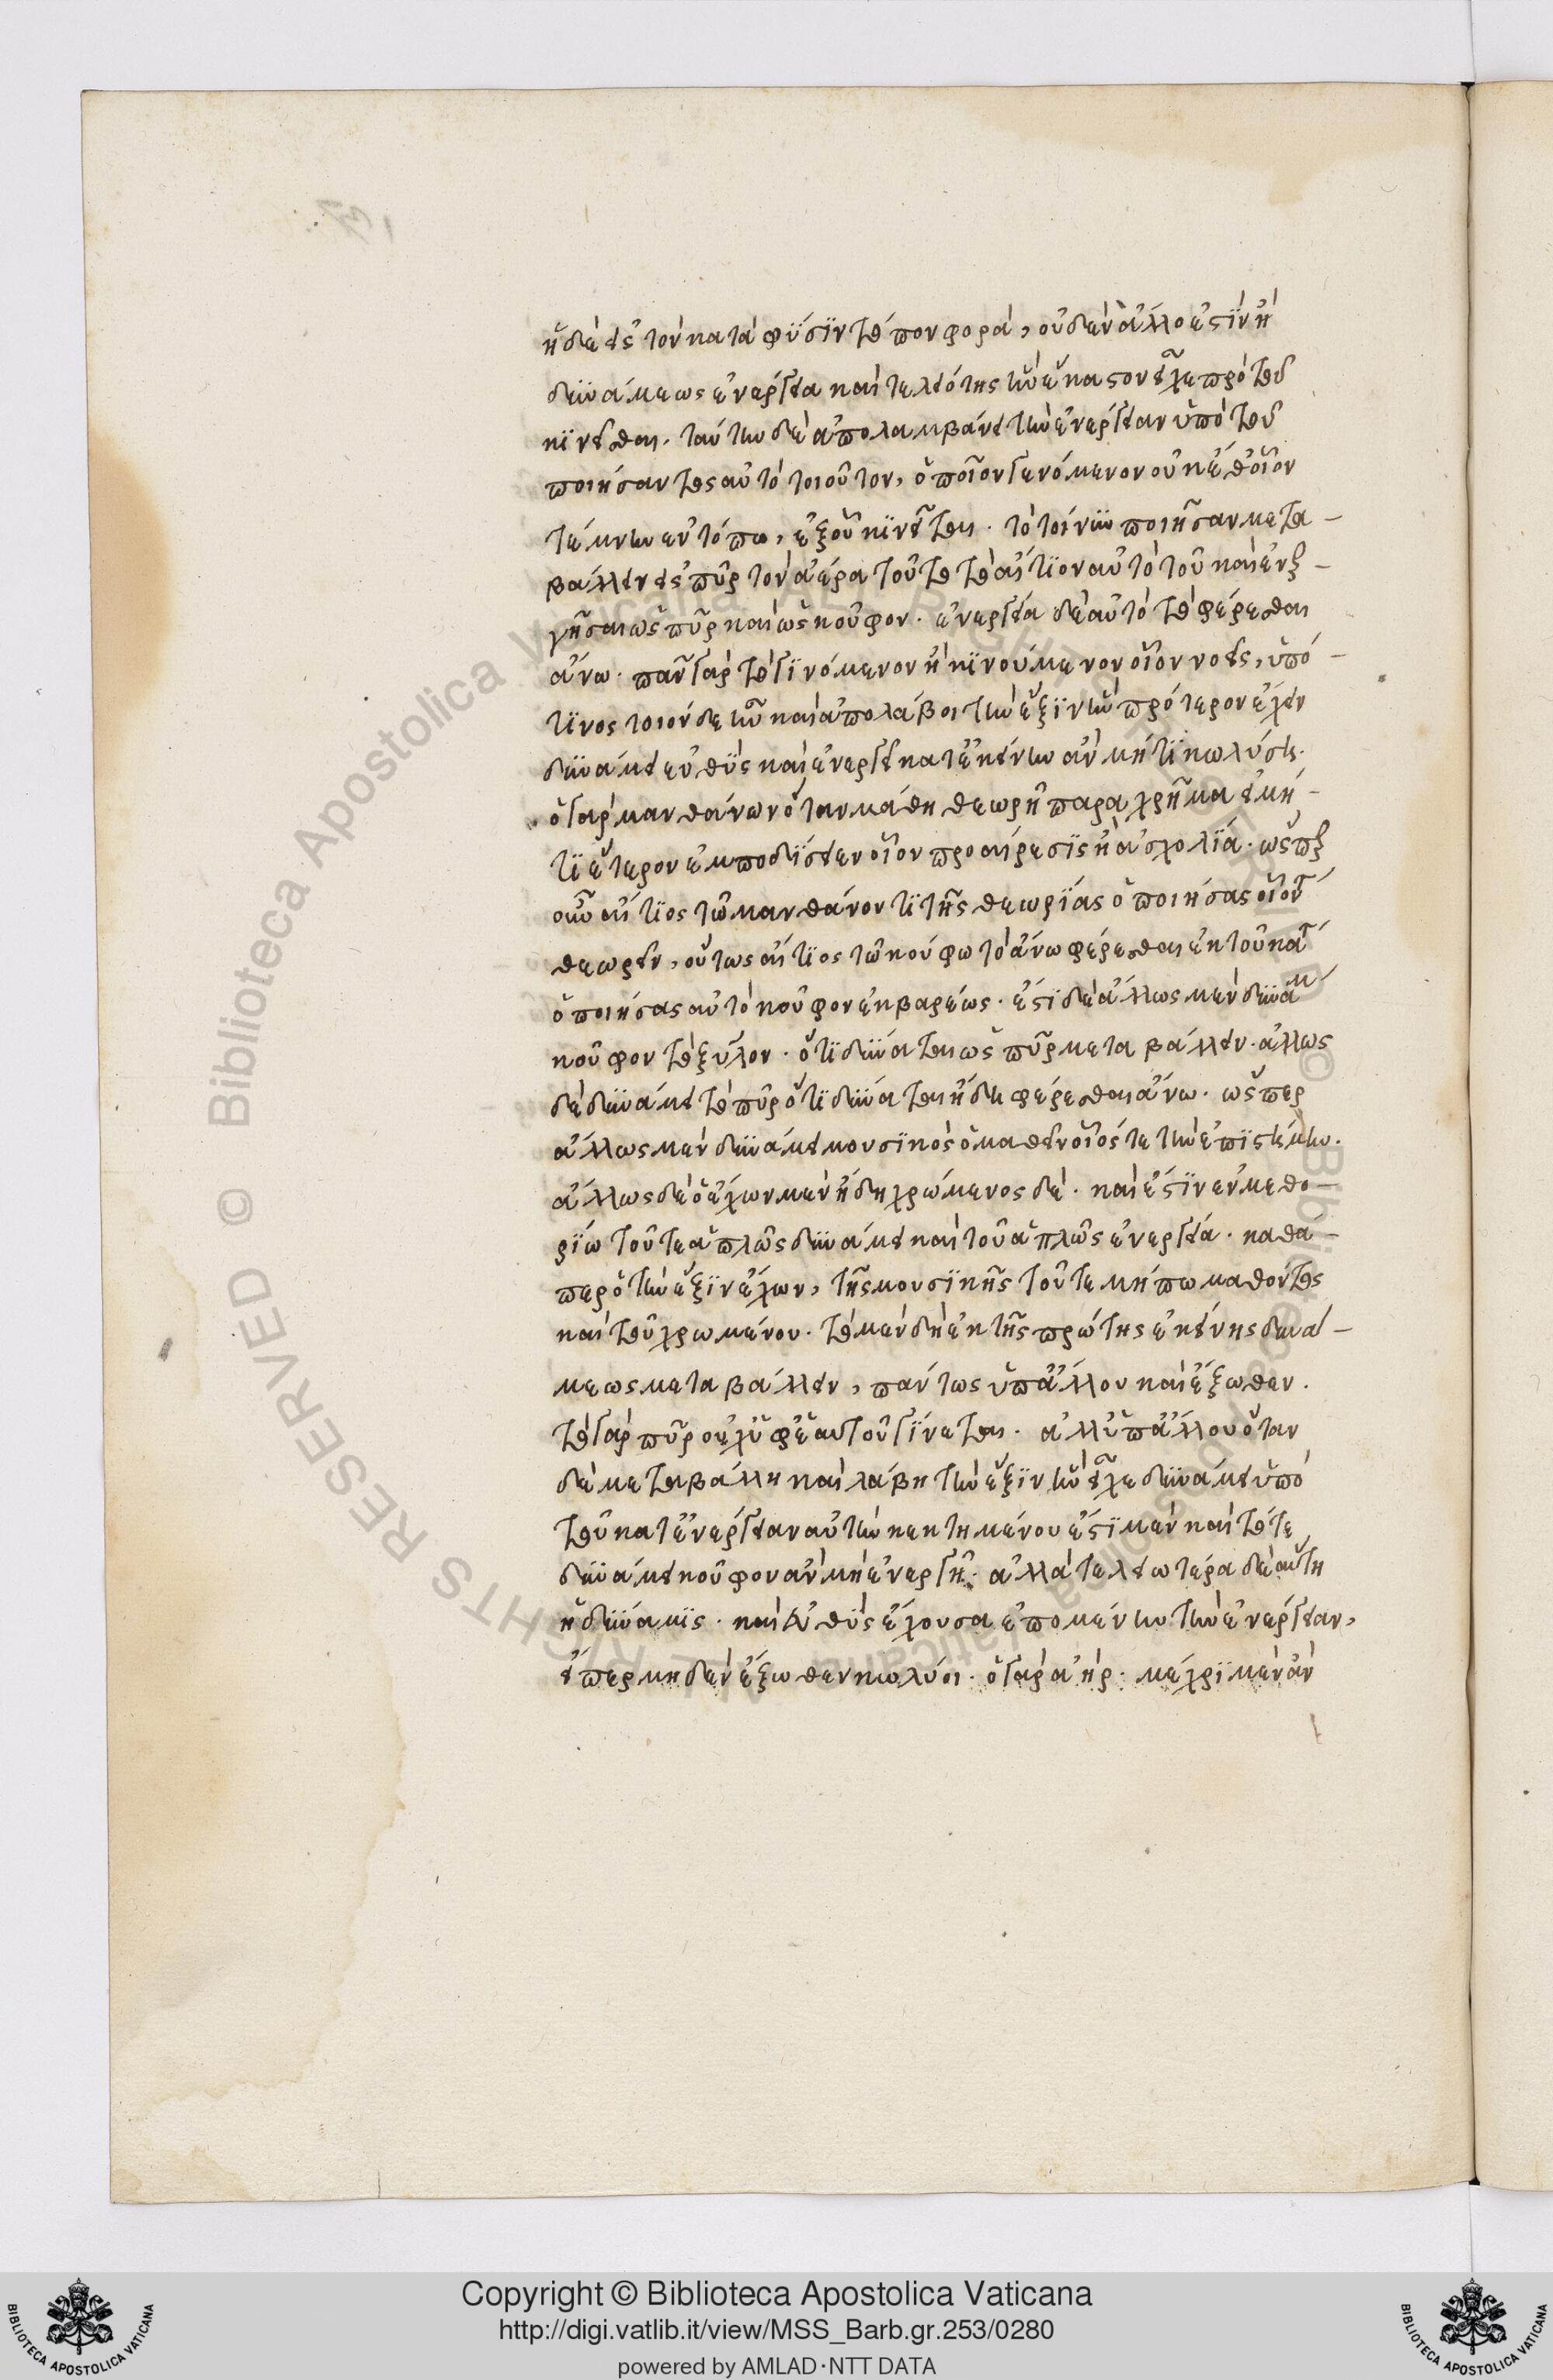 ἡ δὲ εἰς τὸν κατὰ φύσιν τόπον φορά, οὐδὲν ἄλλο ἐστὶν ἢ
δυνάμεως ἐνέργεια καὶ τελειότης ἣν ἕκαστον εἶχε πρὸ τοῦ
κινεῖσθαι. ταύτην δὲ ἀπολαμβάνει τὴν ἐνέργειαν ὑπὸ τοῦ
ποιήσαντος αὐτὸ τοιοῦτον, ὁποῖον γενόμενον οὐκέθ' οἷόν
τε μένειν ἐν τόπω, ἐξ οὗ κινεῖται. τὸ τοίνυν ποιῆσαν μετα-
βάλλειν εἰς πῦρ τὸν ἀέρα τοῦτο τὸ αἴτιον αὐτὸ τοῦ καὶ ἐνερ-
γῆσαι ὡς πῦρ καὶ ὡς κοῦφον. ἐνέργεια δὲ αὐτὸ τὸ φέρεσθαι
ἄνω. πᾶν γὰρ τὸ γινόμενον ἢ κινούμενον οἷον νοεῖς, ὑπό
τινος τοιόνδε ἦν καὶ ἀπολάβοι τὴν ἕξιν ἣν πρότερον ἔχειν
δυνάμει εὐθὺς καὶ ἐνεργεῖ κατ' ἐκείνην ἂν μή τι κωλύση.
ὁ γὰρ μανθάνων ὅταν μάθη θεωρῆ παραχρῆμα εἰ μή
τι ἕτερον ἐμποδίσειεν οἷον προαίρεσις ἢ ἀσχολία. ὥσπερ
οὖν αἴτιος τῶ μανθάνοντι τῆς θεωρίας ὁ ποιήσας οἷόντε
θεωρεῖν, οὕτως αἴτιος τῶ κούφω τὸ ἄνω φέρεσθαι ἐκ τοῦ κάτω
ὁ ποιήσας αὐτὸ κοῦφον ἐκ βαρέως. ἔστι δὲ ἄλλως μὲν δυνάμει
κοῦφον τὸ ξύλον. ὅτι δύναται ὡς πῦρ μεταβάλλειν. ἄλλως
δὲ δυνάμει τὸ πῦρ ὅτι δύναται ἤδη φέρεσθαι ἄνω. ὥσπερ
ἄλλως μὲν δυνάμει μουσικὸς ὁ μαθεῖν οἷός τε τὴν ἐπιστήμην.
ἄλλως δὲ ὁ ἔχων μὲν ἤδη χρώμενος δέ. καὶ ἔστιν ἐν μεθο-
ρίω τοῦ τε ἁπλῶς δυνάμει καὶ τοῦ ἁπλῶς ἐνεργεία. καθά-
περ ὁ τὴν ἕξιν ἔχων, τῆς μουσικῆς τοῦ τε μήπω μαθόντος
καὶ τοῦ χρωμένου. τὸ μὲν δὴ ἐκ τῆς πρώτης ἐκείνης δυνά-
μεως μεταβάλλειν, πάντως ὑπ' ἄλλου καὶ ἔξωθεν.
τὸ γὰρ πῦρ οὐχ ὑφ' ἑαυτοῦ γίνεται. ἀλλ' ὑπ' ἄλλου ὅταν
δὲ μεταβάλλη καὶ λάβη τὴν ἕξιν ἣν εἶχε δυνάμει ὑπὸ
τοῦ κατ' ἐνέργειαν αὐτὴν κεκτημένου ἔστι μὲν καὶ τότε
δυνάμει κοῦφον ἂν μὴ ἐνεργῆ. ἀλλὰ τελειωτέρα δὲ αὕτη
ἡ δύναμις. καὶ εὐθὺς ἔχουσα ἑπομένην τὴν ἐνέργειαν,
εἴπερ μηδὲν ἔξωθεν κωλύοι. ὁ γὰρ ἀὴρ. μέχρι μὲν ἂν
Copyright © Biblioteca Apostolica Vaticana
http://digi.vatlib.it/view/MSS_Barb.gr.253/0280
powered by AMLAD·NTT DATA